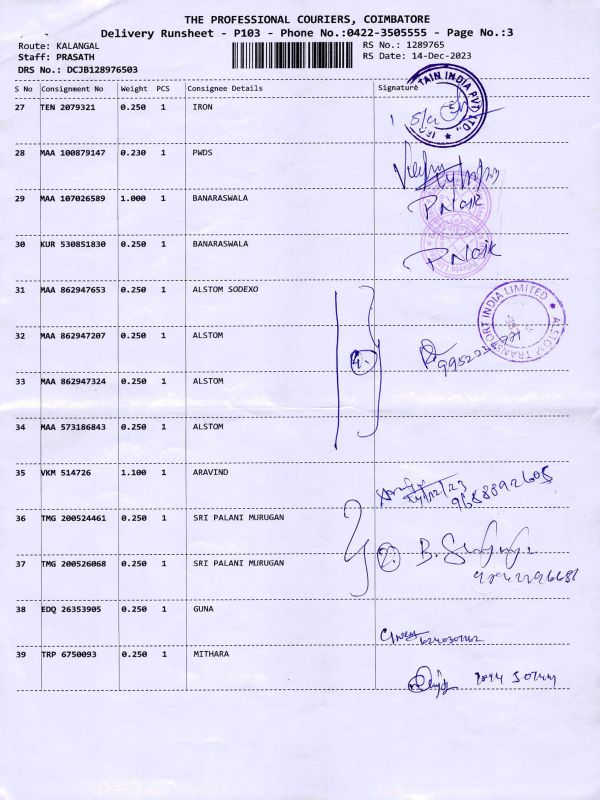 THE PROFESSIONAL COURIERS, COIMBATORE
Delivery Runsheet - P103 - Phone No.:0422-3505555 - Page No.:3
Route: KALANGAL RS No.: 1289765
Staff: PRASATH RS Date: 14-Dec-2023
DRS No.: DCJB128976503
S No Consignment No Weight PCS Consignee Details Signature
27 TEN 2079321 0.250 1 IRON
28 MAA 100879147 0.230 1 PWDS
29 MAA 107026589 1.000 1 BANARASWALA P Naik
30 KUR 530851830 0.250 1 BANARASWALA P Naik
31 MAA 862947653 0.250 1 ALSTOM SODEXO
ALSTOM TRANSPORT INDIA LIMITED
32 MAA 862947207 0.250 1 ALSTOM
4.
33 MAA 862947324 0.250 1 ALSTOM
34 MAA 573186843 0.250 1 ALSTOM
35 VKM 514726 1.100 1 ARAVIND
14/12/23 9688892605
36 TMG 200524461 0.250 1 SRI PALANI MURUGAN
2.
37 TMG 200526068 0.250 1 SRI PALANI MURUGAN
38 EDQ 26353905 0.250 1 GUNA
39 TRP 6750093 0.250 1 MITHARA